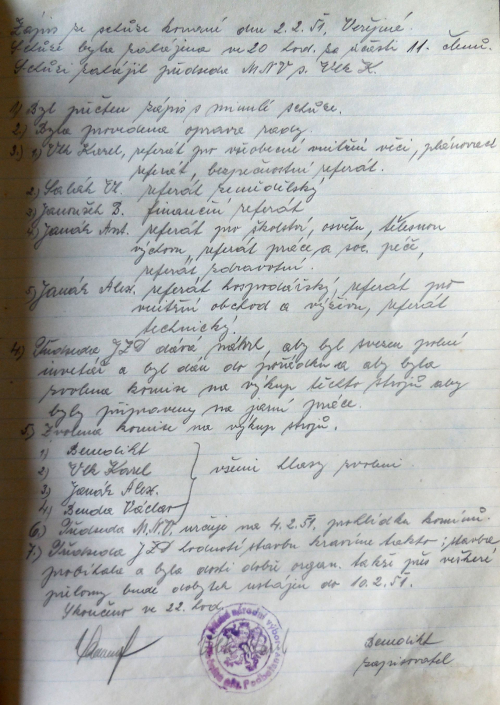 Zápis ze schůze konané dne 2.2.51, Veřejné.
Schůze byla zahájena ve 20 hod. za účasti 11. členů.
Schůzi zahájil předseda M.N.V. s. Vlk K.
1) Byl přečten zápis s minulé schůze.
2) Byla provedena oprava rady.
3.) 1) Vlk Karel, referát pro všeobecné vnitřní věci, plánovací
referát, bezpečnostní referát.
2) Vl. referát zemědělský
3) Janoušek B. finanční referát
4) Janák Ant. referát pro školství, osvětu, tělesnou
výchovu, referát práce a soc. péče,
referát zdravotní.
5) Janák Alex. referát hospodářský, referát pro
vnitřní obchod a výživu, referát
technický.
4) Předseda JZD dává návrh, aby byl svezen polní
inventář a byl dán do pořádku a aby byla
zvolena komise na výkup těchto strojů aby
byly připraveny na jarní práce.
5) Zvolena komise na výkup strojů.
1) Benedikt
2) Vlk Karel
3) Janák Alex.
4) Benda Václav
všemi hlasy zvoleni.
6.) Předseda M.N.V. určuje na 4.2.51. prohlídku komínů.
7.) Předseda JZD hodnotí stavbu kravína takto; stavba
probíhala a byla dosti dobře organ. takže přes veškeré
průlomy bude dobytek ustájen do 10.2.51.
Skončeno ve 22 hod.
Benedikt
zapisovatel
Místní národní výbor
okr. Poděbrady